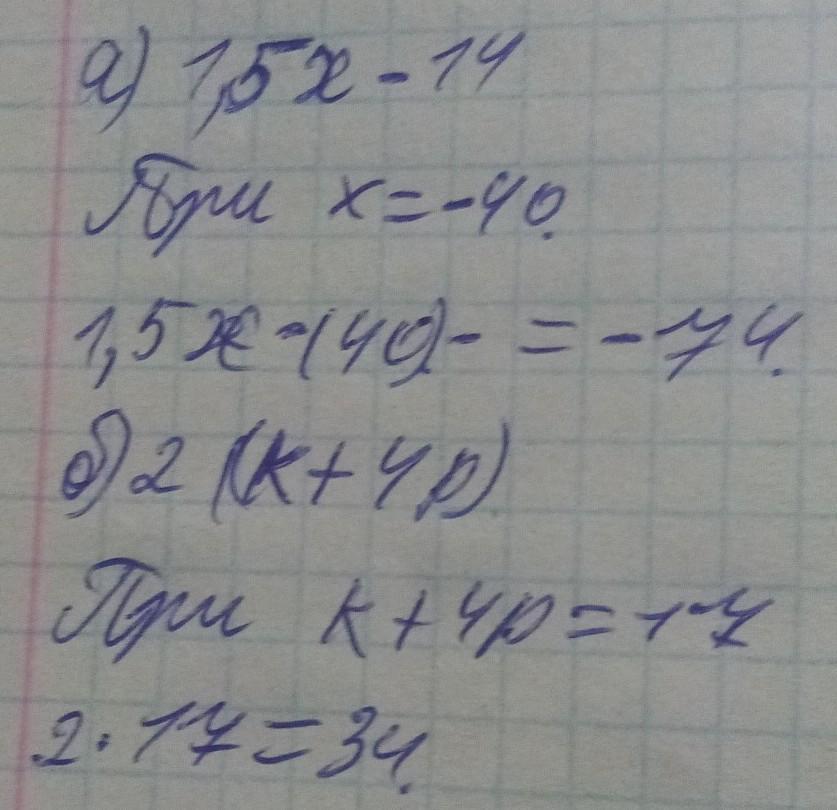 а) 1,5x - 14
При x = -40.
1,5x -(40)- = -74.
б) 2 (к + 4р)
При к + 4р = 17
2 · 17 = 34.